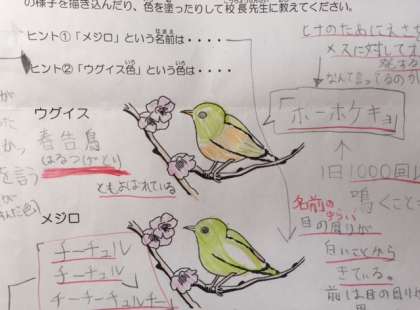 の様子を描き込んだり、色を塗ったりして校長先生に教えてください。
ヒント①「メジロ」という名前は・・・・
ヒント②「ウグイス色」という色は・・・・
ヒナのためにえさを
メスに対して
なんて言ってるのか
「ホーホケキョ」
ウグイス
春告鳥
ともよばれている
1日1000回
鳴くこと
を言う
名前の
目の周りが
白いことから
きている。
メジロ
チーチュル
チーチュル
チーチーチュルチー
前は目の周りが